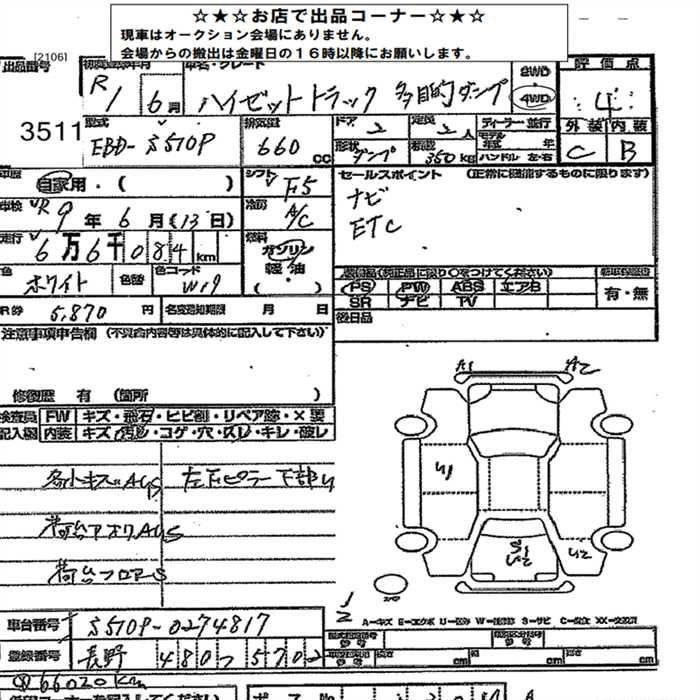 ☆★☆お店で出品コーナー☆★☆
現車はオークション会場にありません。
会場からの搬出は金曜日の１６時以降にお願いします。
[2106]
出品番号 車名・グレード 2WD 評価点
R1 6月 ハイゼットトラック 多目的ダンプ 4WD 4
3511
型式 排気量 ドア 定員 ディーラー・並行 外装 内装
EBD-S510P 660 CC 2 2人 モデル年式 年 C B
形状 ダンプ 積載 350kg ハンドル 左・右
車歴 自家用・( ) シフト F5 セールスポイント (正常に機能するものに限ります)
車検 R9年6月(13日) 冷房 A/C ナビ
走行 6万6千084km 燃料 ガソリン 軽油 ・( ) ETC
色 ホワイト 色替 色コード W19
PS PW ABS エアB 有・無
SR ナビ TV
R券 5,870円 名変通知期限 月 日 後日品
注意事項申告欄 (不具合内容等は具体的に記入して下さい)
修復歴 有 (箇所 )
検査員 FW キズ・飛石・ヒビ割・リペア跡・X要
記入欄 内装 キズ・汚れ・コゲ・穴・スレ・キレ・破レ
各小キズAUS 左下ピラー下部U
荷台アオリAUS
荷台フロアーS
A1 A2
U1
S1
U2
U2
A－キズ E－エクボ U－凹み W－補修跡 S－サビ C－腐食 XX－交換済
車台番号 S510P-0274817
登録番号 長野 480 ﾂ 5702
cm cm cm
66020km